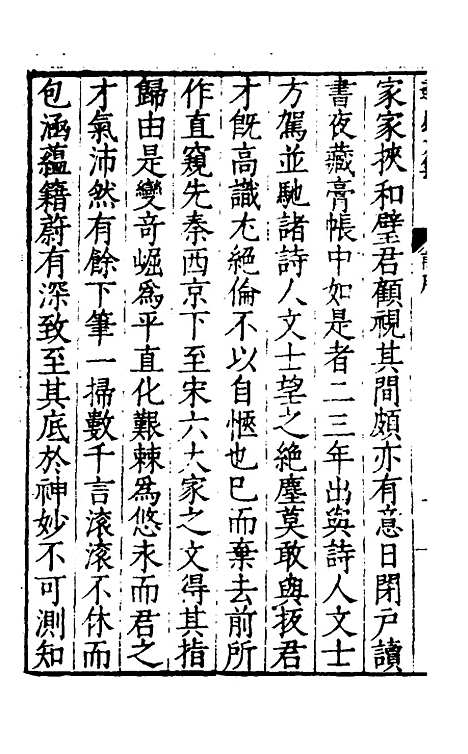 家家挾和璧君顧視其間頗亦有意日閉戶讀
書夜藏膏帳中如是者二三年出與詩人文士
方駕並馳諸詩人文士望之絕塵莫敢與扳君
才旣高識尤絕倫不以自愜也已而棄去前所
作直窺先秦西京下至宋六大家之文得其指
歸由是變奇崛爲平直化艱棘爲悠永而君之
才氣沛然有餘下筆一掃數千言滚滚不休而
包涵蘊籍蔚有深致至其底於神妙不可測知